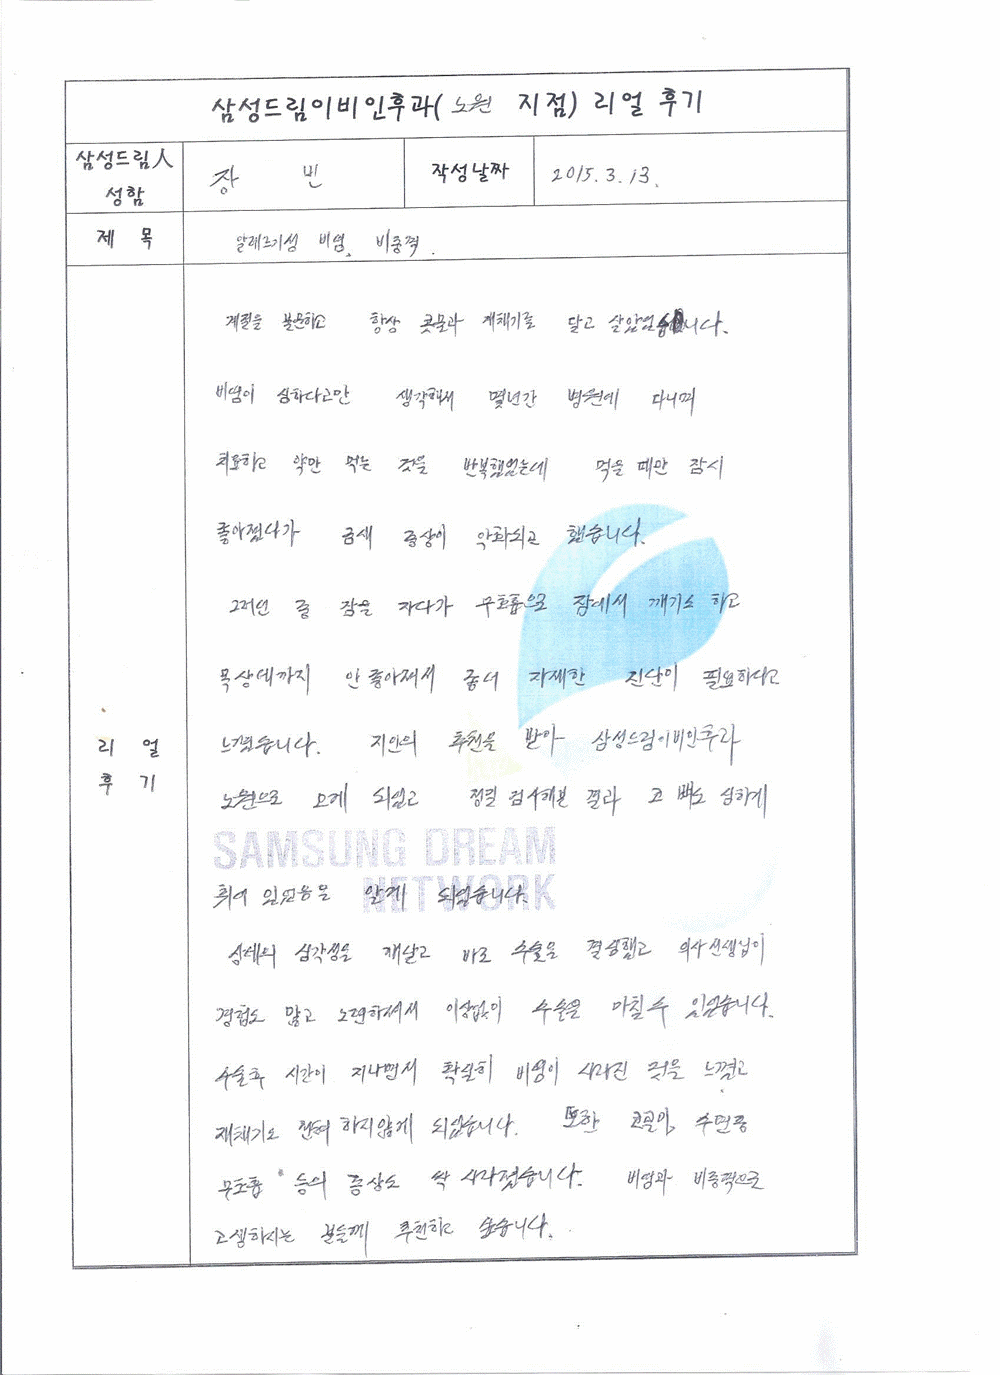 삼성드림이비인후과( 노원 지점) 리얼 후기
삼성드림人 성함
장 빈
작성날짜
2015. 3. 13.
제 목
알레르기성 비염, 비중격.
리 얼 후 기
계절을 불문하고 항상 콧물과 재채기로 달고 살았었습니다.
비염이 심하다고만 생각해서 몇년간 병원에 다니며
치료하고 약만 먹는 것을 반복했었는데 먹을 때만 잠시
좋아졌다가 금새 증상이 악화되고 했습니다.
그러던 중 잠을 자다가 무호흡으로 잠에서 깨기도 하고
목상태까지 안좋아져서 좀더 자세한 진단이 필요하다고
느꼈습니다. 지인의 추천을 받아 삼성드림이비인후과
노원으로 오게 되었고 정밀 검사해본 결과 코 뼈도 심하게
SAMSUNG DREAM
NETWORK
휘어 있었음을 알게 되었습니다.
상태의 심각성을 깨닫고 바로 수술을 결심했고 의사선생님이
경험도 많고 노련하셔서 이상없이 수술을 마칠 수 있었습니다.
수술후 시간이 지나면서 확실히 비염이 사라진 것을 느꼈고
재채기도 전혀 하지않게 되었습니다. 또한 코골이, 수면중
무호흡 등의 증상도 싹 사라졌습니다. 비염과 비중격으로
고생하시는 분들께 추천하고 싶습니다.